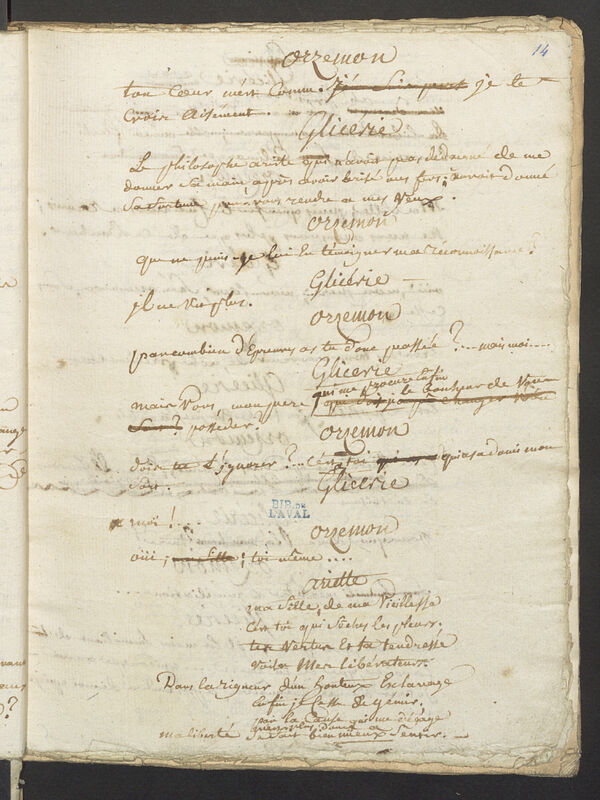 14
orzemon
ton Coeur m'est Connu. je le
Crois Aisément.
Glicerie
Le philosophe arité qui n'avoit pas dédaigné de me
donner sa main après avoir brisé mes fers, avoit donné
sa fortune pour vous rendre a mes Vœux.
orzemon
que ne puis-je lui En témoigner ma réconnoissance?
Glicerie
jl ne Vit plus.
orzemon
par combien d'Epreuves as tu donc passée?... mais moi....
Glicerie
qui me procure Enfin
mais Vous, mon pere, le bonheur de Vous
posséder?
orzemon
dois tu L'ignorer?... C'est toi qui as adouci mon
Sort.
Glicerie
moi!...
BIB. DE
LAVAL
orzemon
oüi, toi même....
ariette
ma fille, de ma Vieillesse
C'est toi qui Sèches les pleurs.
tes Vertus Et ta tendresse
Voila Mes libérateurs.
Dans la rigueur d'un honteux Esclavage
Enfin je Cesse de gémir.
par la Cause qui me dégage
ma liberté se fait bien mieux Sentir.